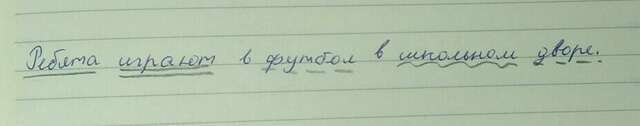 Ребята играют в футбол в школьном дворе.